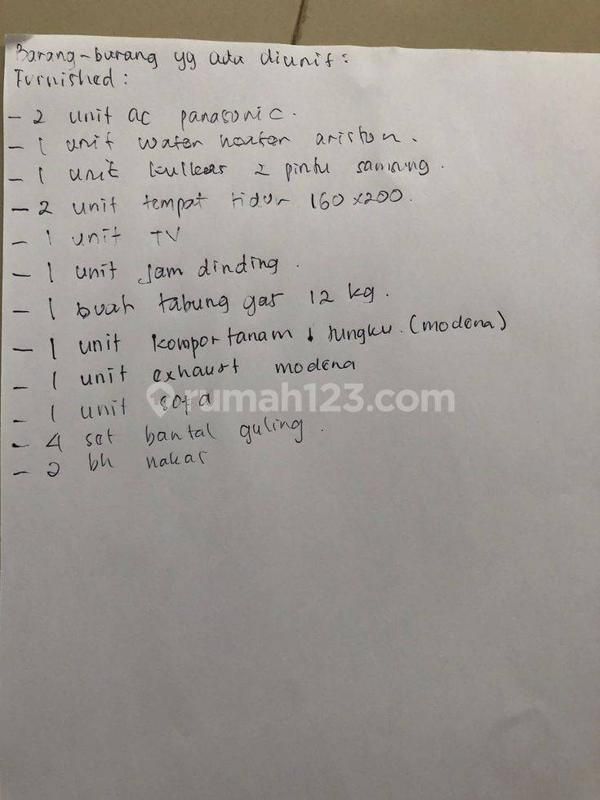 Barang-barang yg ada diunit :
Furnished :
- 2 unit ac panasonic.
- 1 unit water heater ariston.
- 1 unit kulkas 2 pintu samsung.
- 2 unit tempat tidur 160x200.
- 1 unit TV
- 1 unit jam dinding.
- 1 buah tabung gas 12 kg.
- 1 unit kompor tanam tungku. (modena)
- 1 unit exhaust modena
- 1 unit sofa
rumah123.com
- 4 set bantal guling.
- 2 bh nakas